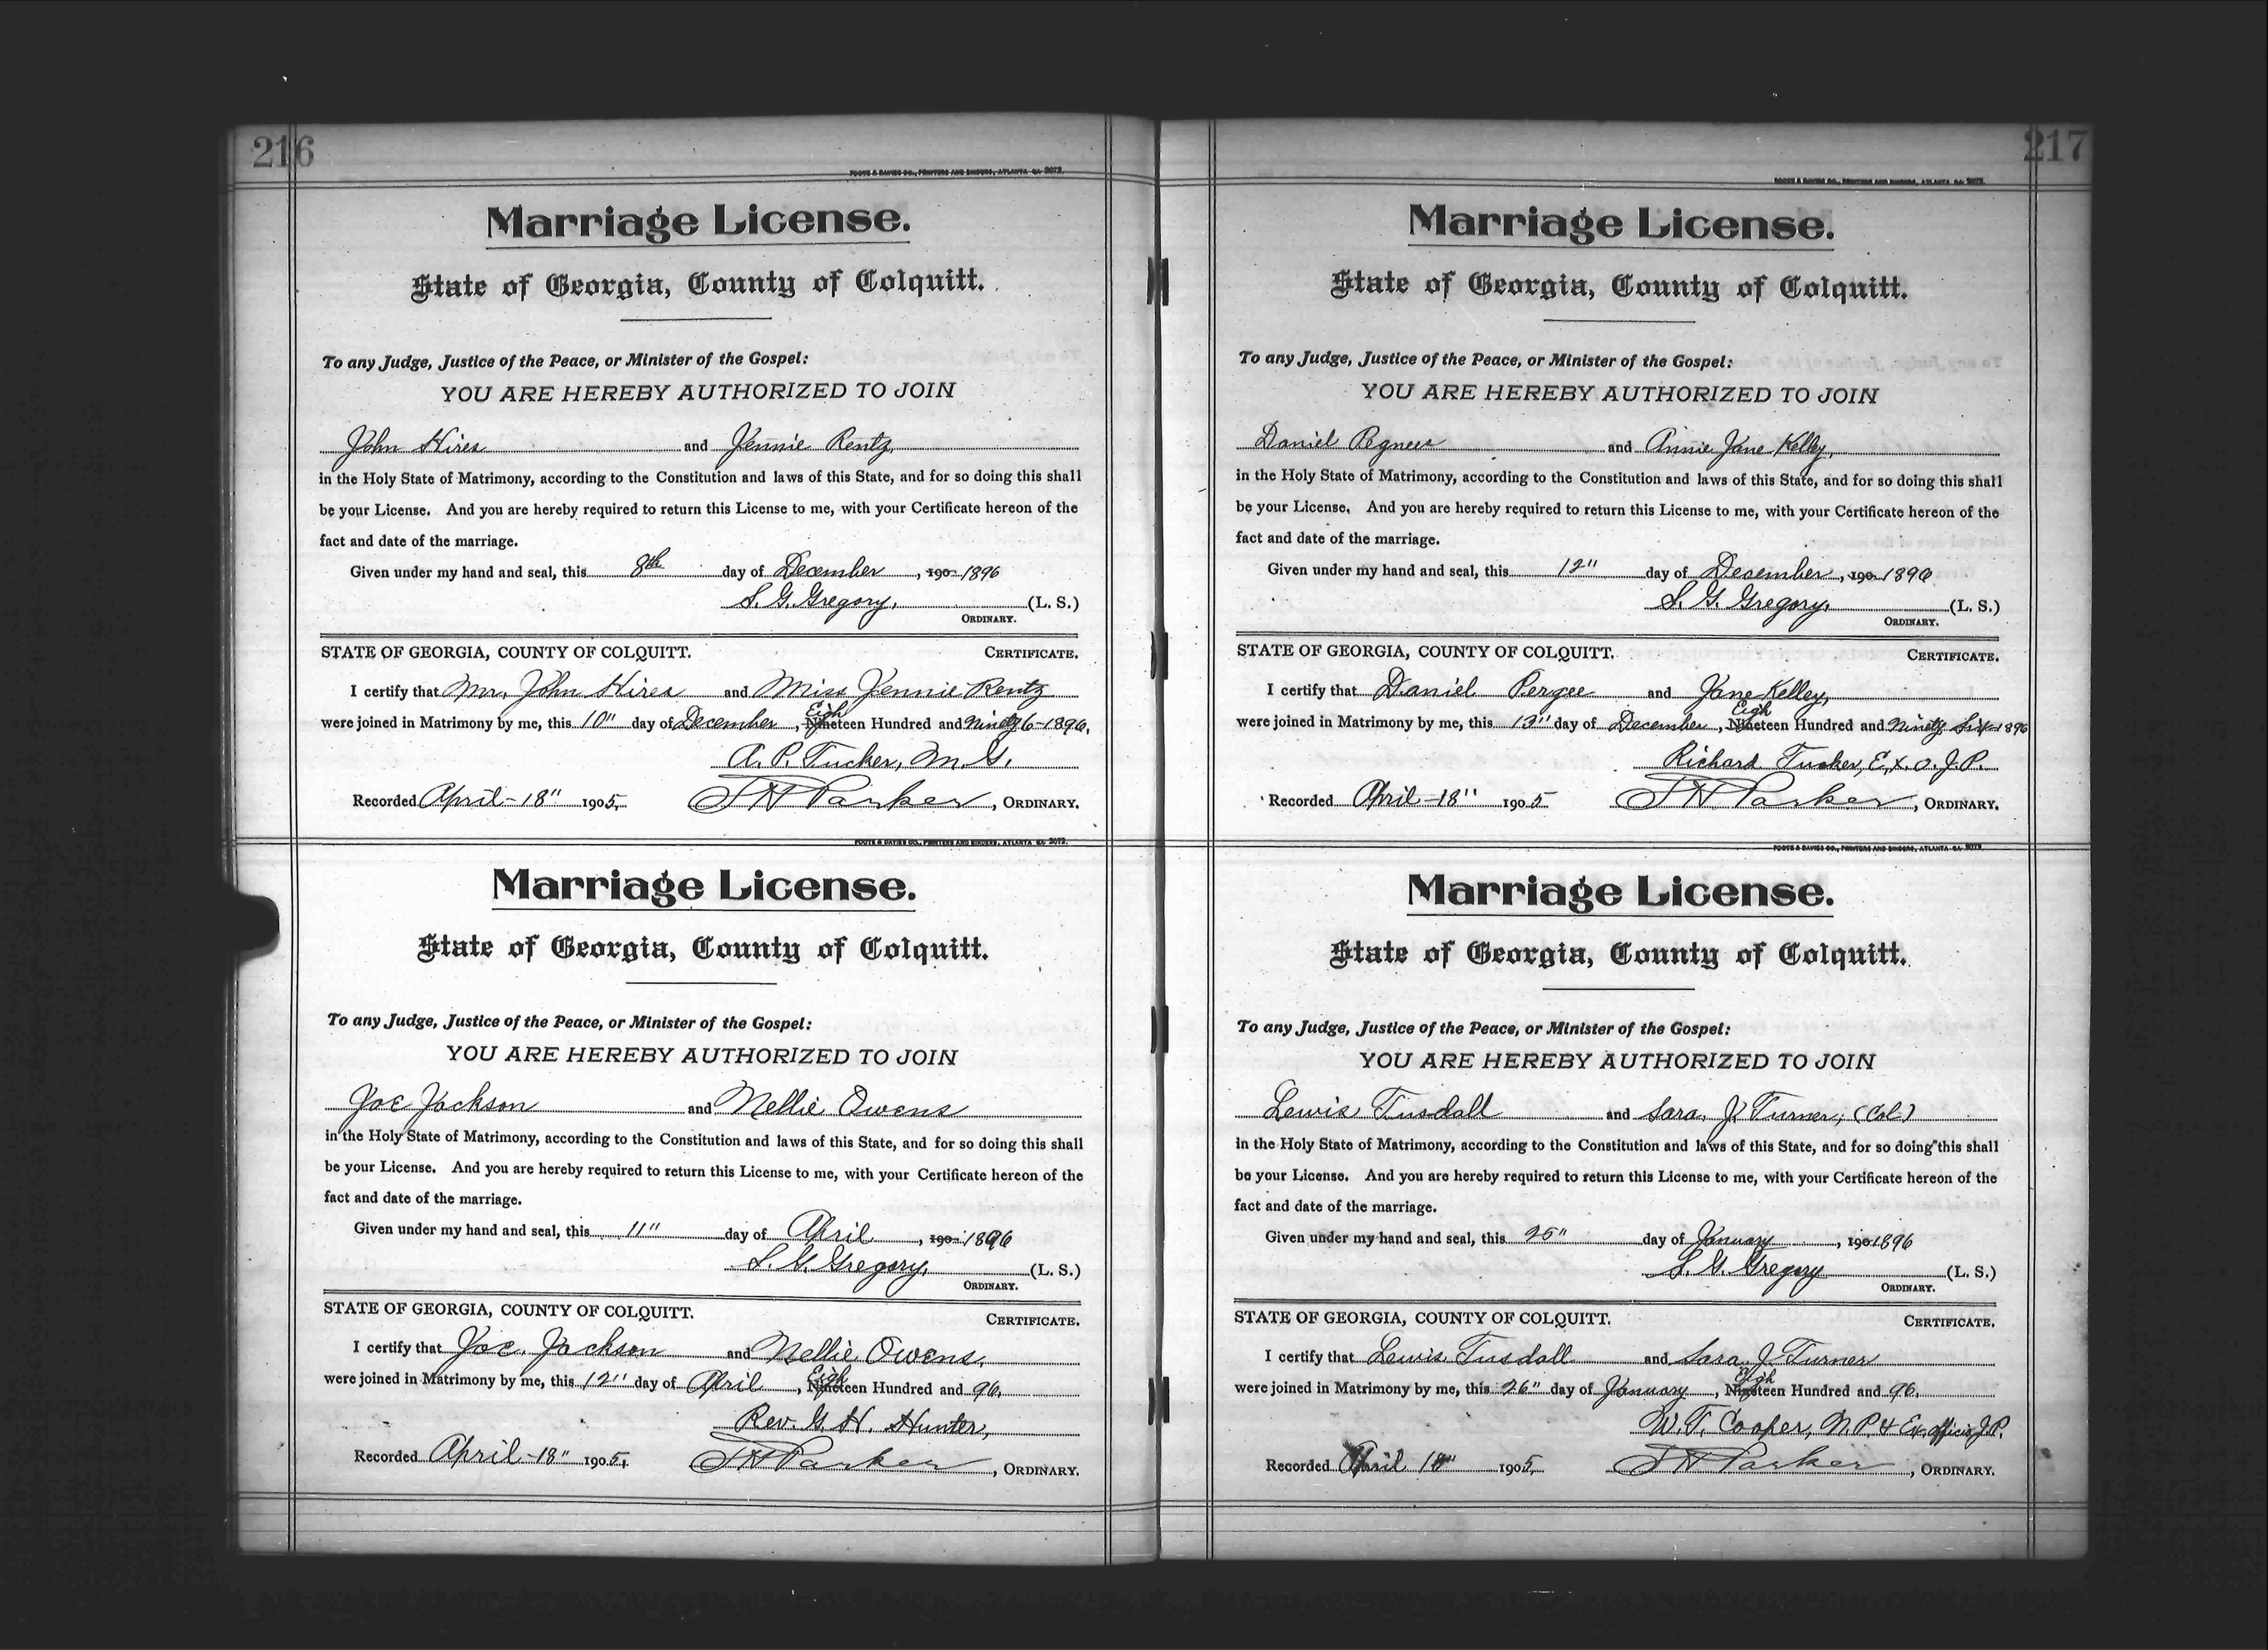 216
FOOTE & DAVIES CO., PRINTERS AND BINDERS, ATLANTA GA. 2072.
Marriage License.
State of Georgia, County of Colquitt.
To any Judge, Justice of the Peace, or Minister of the Gospel:
YOU ARE HEREBY AUTHORIZED TO JOIN
John Hires and Jennie Rentz,
in the Holy State of Matrimony, according to the Constitution and laws of this State, and for so doing this shall
be your License. And you are hereby required to return this License to me, with your Certificate hereon of the
fact and date of the marriage.
Given under my hand and seal, this 8th day of December, 190 1896
S. G. Gregory, (L. S.)
ORDINARY.
STATE OF GEORGIA, COUNTY OF COLQUITT. CERTIFICATE.
I certify that Mr. John Hires and Miss Jennie Rentz
were joined in Matrimony by me, this 10" day of December, Eigh Nineteen Hundred and Ninety 6-1896,
A. P. Tucker, M. G.
Recorded April-18" 1905. J H Parker, ORDINARY.
FOOTE & DAVIES CO., PRINTERS AND BINDERS, ATLANTA GA. 2072.
Marriage License.
State of Georgia, County of Colquitt.
To any Judge, Justice of the Peace, or Minister of the Gospel:
YOU ARE HEREBY AUTHORIZED TO JOIN
Joe Jackson and Nellie Owens
in the Holy State of Matrimony, according to the Constitution and laws of this State, and for so doing this shall
be your License. And you are hereby required to return this License to me, with your Certificate hereon of the
fact and date of the marriage.
Given under my hand and seal, this 11" day of April, 190 1896
S. G. Gregory, (L. S.)
ORDINARY.
STATE OF GEORGIA, COUNTY OF COLQUITT. CERTIFICATE.
I certify that Joe Jackson and Nellie Owens,
were joined in Matrimony by me, this 12" day of April, Eigh Nineteen Hundred and 96,
Rev. G. H. Hunter,
Recorded April-18" 1905. J H Parker, ORDINARY.
217
FOOTE & DAVIES CO., PRINTERS AND BINDERS, ATLANTA GA. 2072.
Marriage License.
State of Georgia, County of Colquitt.
To any Judge, Justice of the Peace, or Minister of the Gospel:
YOU ARE HEREBY AUTHORIZED TO JOIN
Daniel and Annie Jane Kelley,
in the Holy State of Matrimony, according to the Constitution and laws of this State, and for so doing this shall
be your License. And you are hereby required to return this License to me, with your Certificate hereon of the
fact and date of the marriage.
Given under my hand and seal, this 12" day of December, 190 1896
S. G. Gregory, (L. S.)
ORDINARY.
STATE OF GEORGIA, COUNTY OF COLQUITT. CERTIFICATE.
I certify that Daniel Pergee and Jane Kelley,
were joined in Matrimony by me, this 13" day of December, Eigh Nineteen Hundred and Ninety Six 1896
Richard Tucker, Ex. O. J. P.
Recorded April-18" 1905. J H Parker, ORDINARY.
FOOTE & DAVIES CO., PRINTERS AND BINDERS, ATLANTA GA. 2072.
Marriage License.
State of Georgia, County of Colquitt.
To any Judge, Justice of the Peace, or Minister of the Gospel:
YOU ARE HEREBY AUTHORIZED TO JOIN
Lewis Tusdall and Sara. J. Turner, (Col)
in the Holy State of Matrimony, according to the Constitution and laws of this State, and for so doing this shall
be your License. And you are hereby required to return this License to me, with your Certificate hereon of the
fact and date of the marriage.
Given under my hand and seal, this 25" day of January, 190 1896
S. G. Gregory (L. S.)
ORDINARY.
STATE OF GEORGIA, COUNTY OF COLQUITT. CERTIFICATE.
I certify that Lewis Tusdall and Sara. J. Turner
were joined in Matrimony by me, this 26" day of January, Eigh Nineteen Hundred and 96,
W. T. Cooper, N. P. & Ex. officio J. P.
Recorded April 18" 1905. J H Parker, ORDINARY.